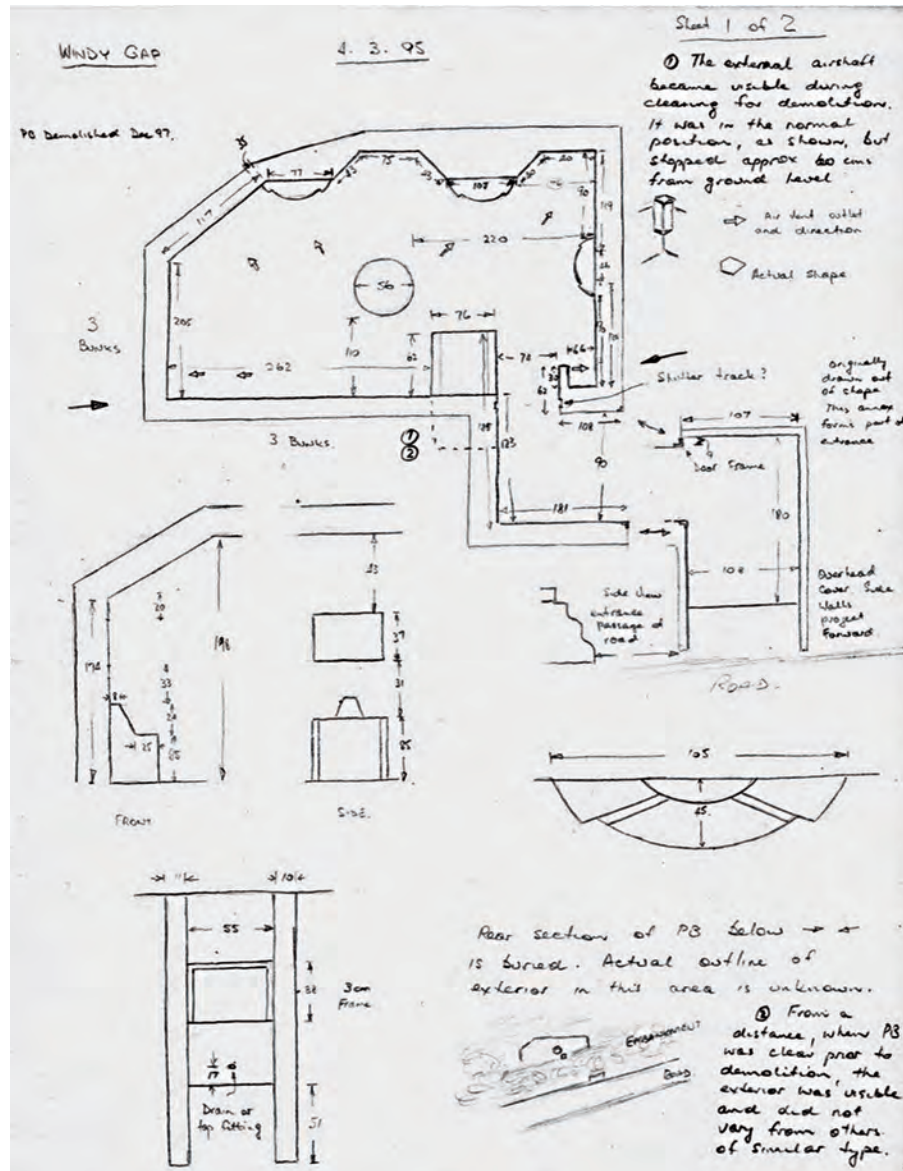 Sheet 1 of 2
WINDY GAP
4. 3. 95
PB Demolished Dec 97.
① The external airshaft
became visible during
clearing for demolition.
It was in the normal
position, as shown, but
stopped approx 60 cms
from ground level
Air vent outlet
and direction
Actual Shape
77
75
108
20
117
90
119
220
56
76
205
262
110
62
70
66
3
Bunks
Shutter track?
3 Bunks.
①
②
108
90
181
originally
drawn out
of shape
This annex
forms part of
entrance
107
Door Frame
180
108
Overhead
Cover. Side
Walls
project
Forward.
Side View
entrance
passage &
road
ROAD.
20
198
174
33
25
37
31
FRONT
SIDE.
105
45.
11
10
55
38
3cm
Frame
17
Drain or
tap fitting
51
Rear section of PB below
is buried. Actual outline of
exterior in this area is unknown.
EMBANKMENT
ROAD.
② From a
distance, when PB
was clear prior to
demolition, the
exterior was visible
and did not
vary from others
of similar type.